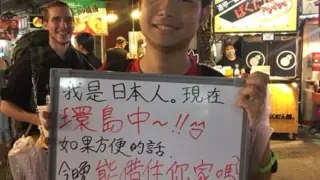 我是日本人。現在
環島中～!!
如果方便的話
今晚能借住你家嗎